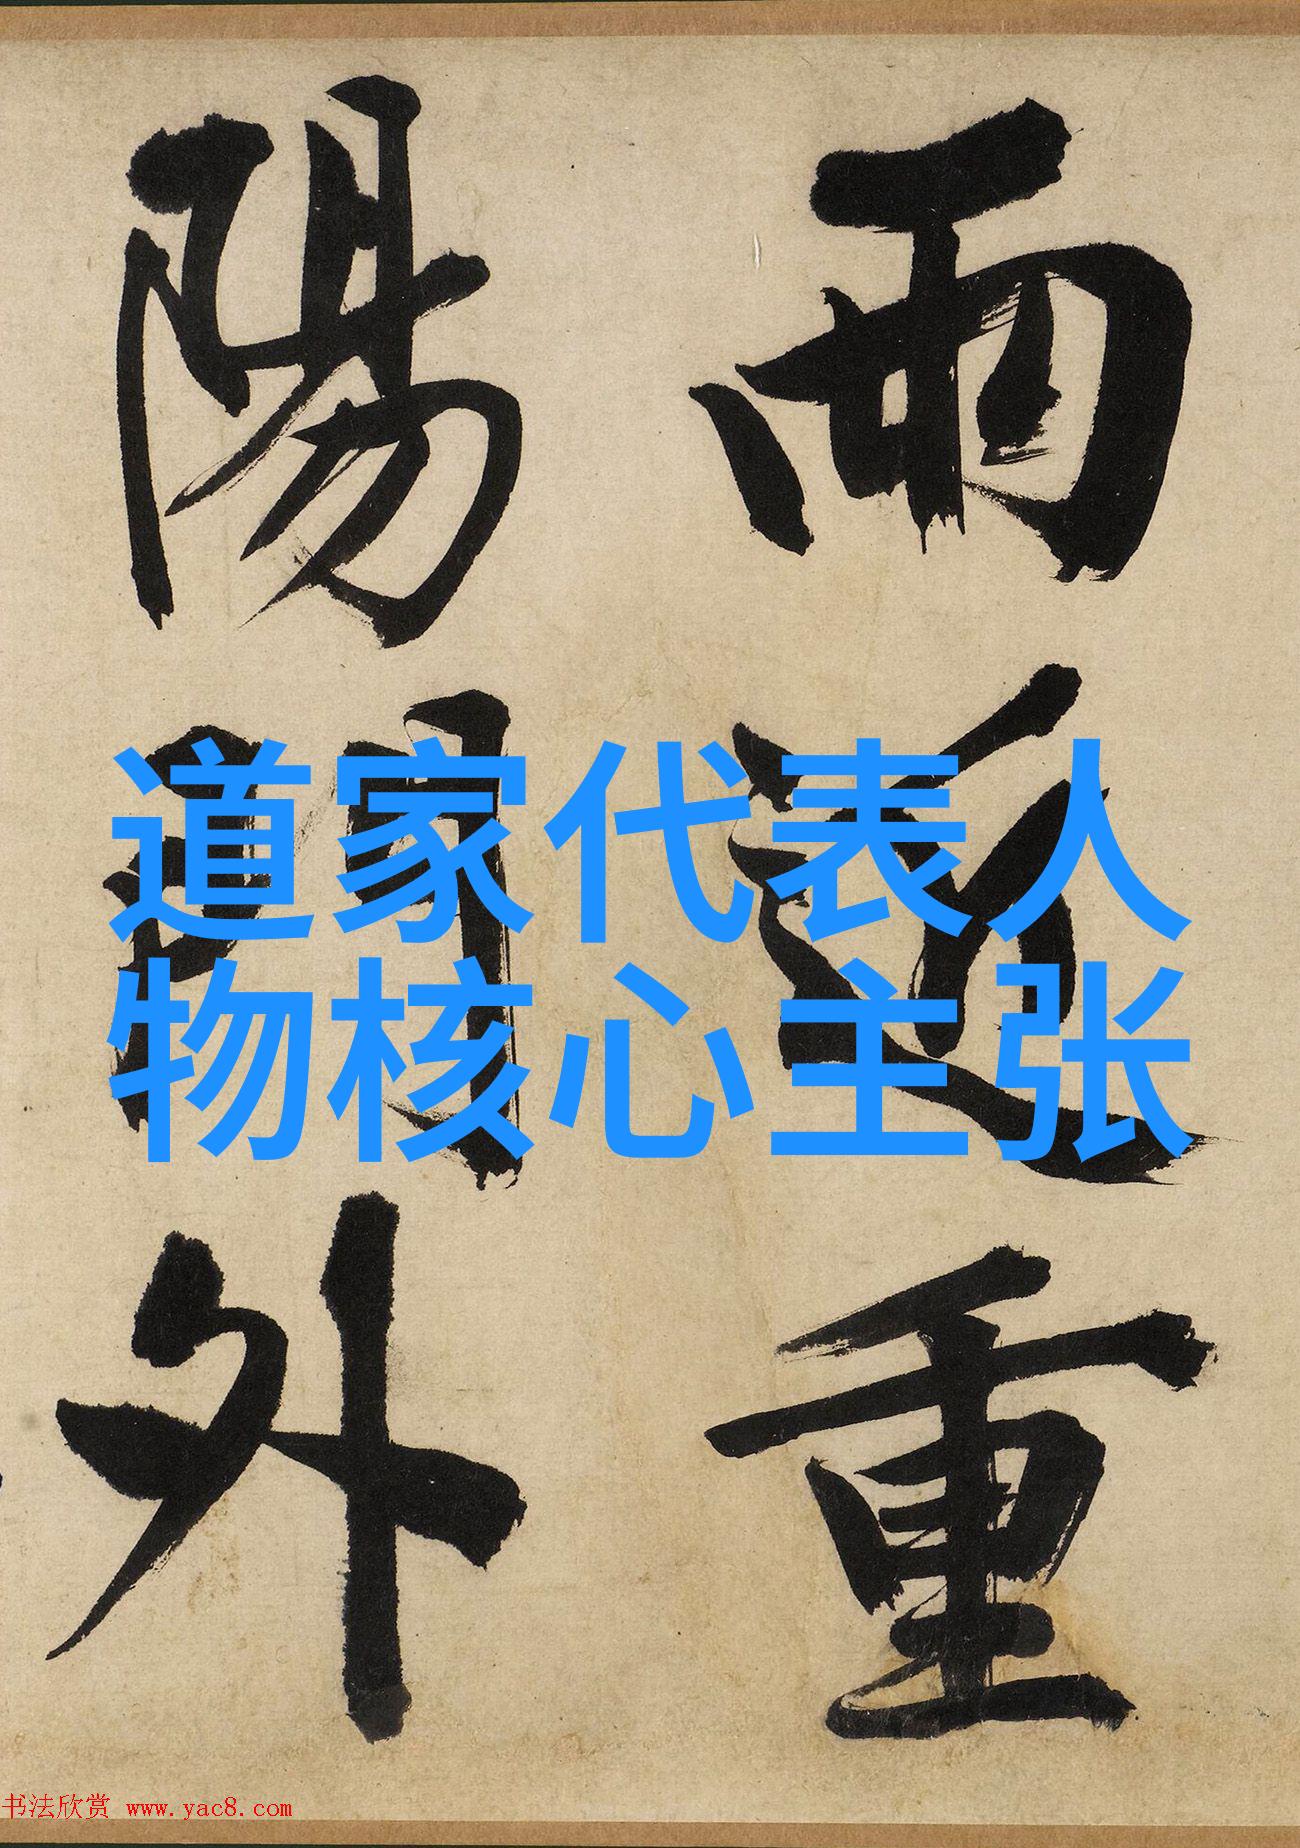 雨近重
陽門外
道家代表人
物核心主张
书法欣赏 www.yac8.com